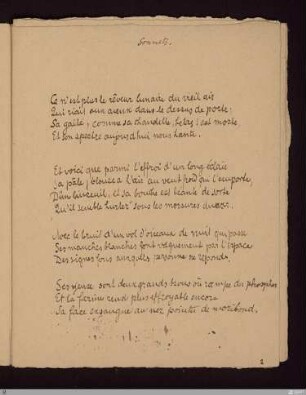 Sonnets.
Ce n'est plus le rêveur lunaire du vieil air
Qui riait aux aïeux dans les dessus de porte;
Sa gaîté, comme sa chandelle, hélas! est morte
Et son spectre aujourd'hui nous hante
Et voici que parmi l'effroi d'un long éclair
Sa pâle blouse a l'air, au vent froid qui l'emporte
D'un linceuil, et sa bouche est béante, de sorte
Qu'il semble hurler sous les morsures du ver.
Avec le bruit d'un vol d'oiseaux de nuit qui passe
Ses manches blanches font vaguement par l'espace
Des signes fous auxquels personne ne répond.
Ses yeux sont deux grands trous où rampe du phosphore
Et la farine rend plus effroyable encore
Sa face exsangue au nez pointu de moribond.
2